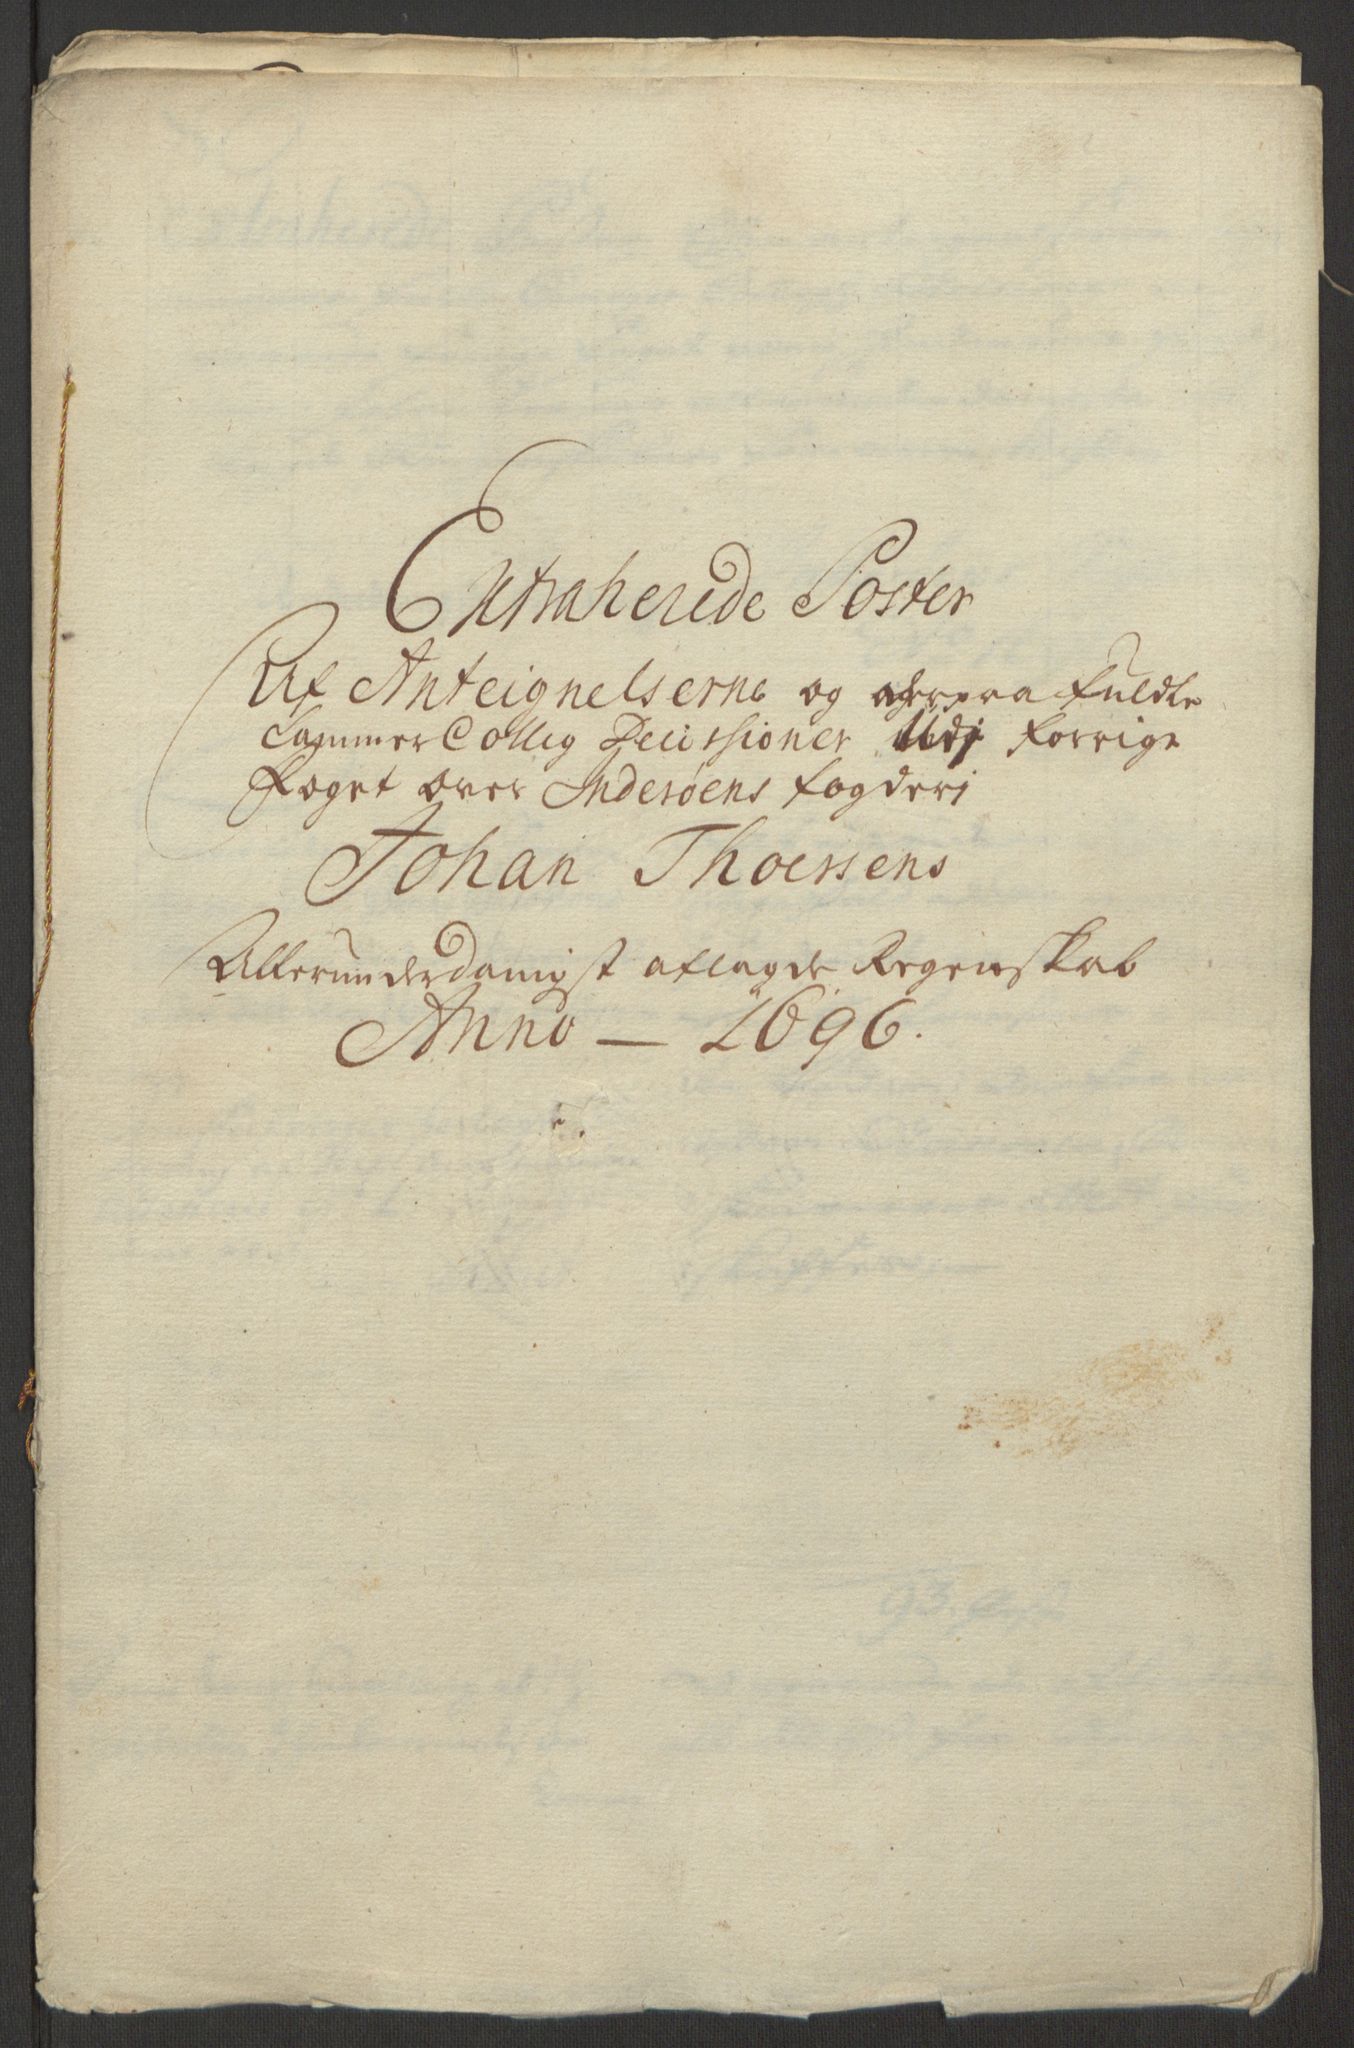 Extraherede Poster
Af Anteignelserne og derpaa fuldte
Cammer Collig Decissioner Udj forrige
foget over Inderøens fogderj
Johan Thoessens
Allerunderdanigst aflagde Regenskab
Anno — 1696.